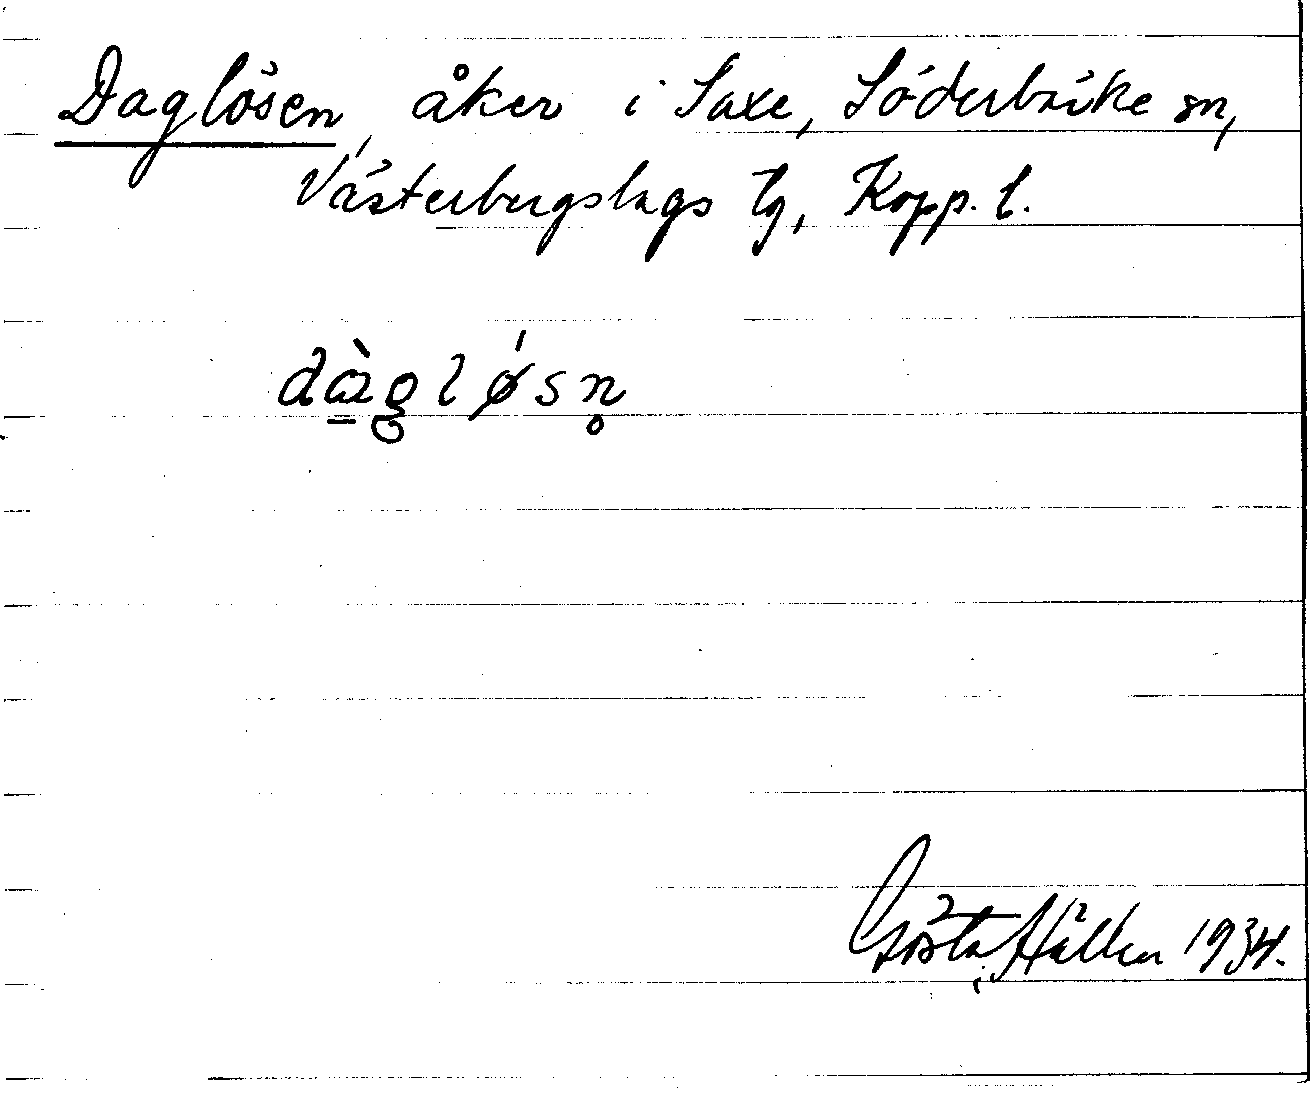 Daglösen, åker i Saxe, Söderbärke sn,
Västerbergslags tg, Kopp. l.
dàg lǿsn̥
Gösta Hällen 1934.